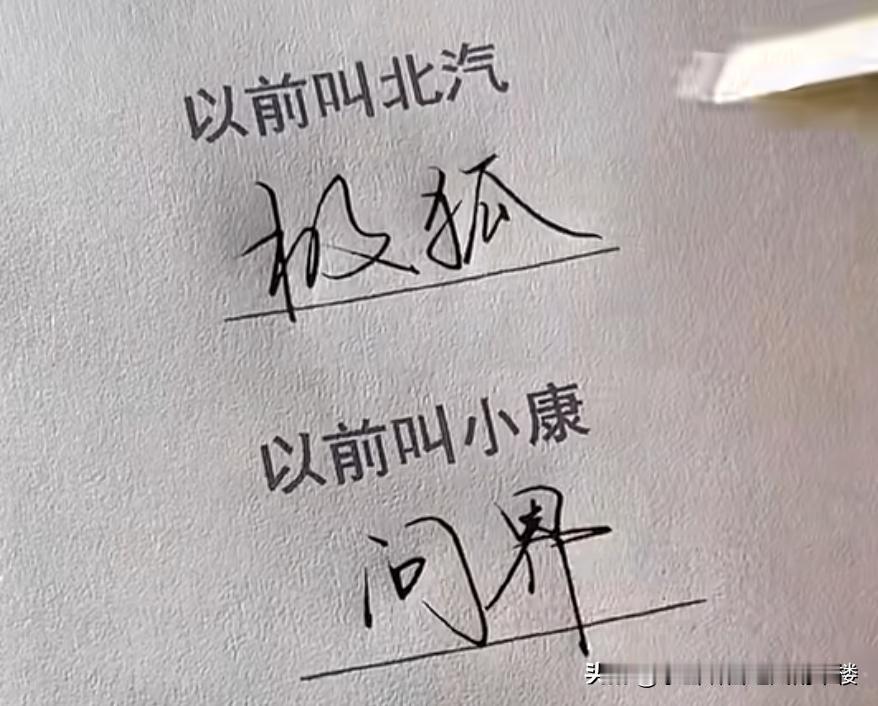 以前叫北汽
极狐
以前叫小康
问界